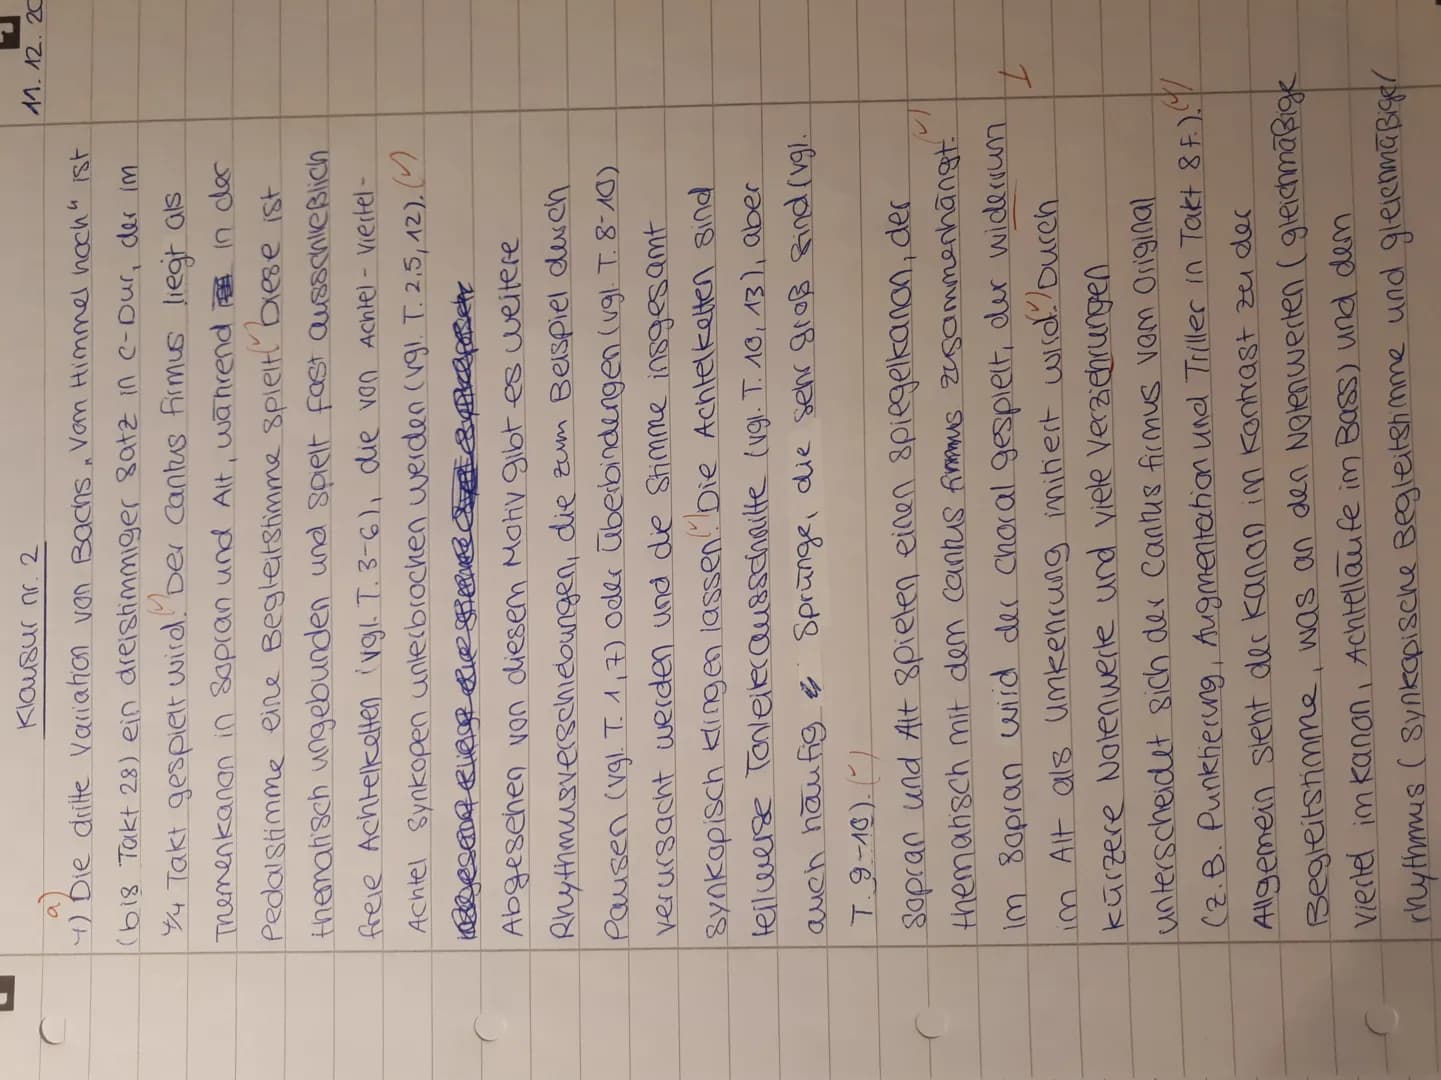 Klausur nr. 2
11. 12. 20
a)
4) Die dritte Variation von Bachs „Vom Himmel hoch" ist
(bis Takt 28) ein dreistimmiger Satz in C-Dur, der im
4/4 Takt gespielt wird. (✓) Der Cantus firmus liegt als
Themenkanon in Sopran und Alt, während in der
Pedalstimme eine Begleitstimme spielt. (✓) Diese ist
thematisch ungebunden und spielt fast ausschließlich
freie Achtelketten (vgl. T. 3-6), die von Achtel-Viertel-
Achtel Synkopen unterbrochen werden (vgl. T. 2.5, 12). (✓)
Abgesehen von diesem Motiv gibt es weitere
Rhythmusverschiebungen, die zum Beispiel durch
Pausen (vgl. T. 1, 7) oder Überbindengen (vgl. T. 8-10)
verursacht werden und die Stimme insgesamt
synkopisch klingen lassen. (✓) Die Achtelketten sind
teilweise Tonleiterausschnitte (vgl. T. 10, 13), aber
auch häufig Sprünge, die sehr groß sind (vgl.
T. 9-10). (✓)
Sopran und Alt spielen einen Spiegelkanon, der
thematisch mit dem cantus firmus zusammenhängt. (✓)
Im Sopran wird der Choral gespielt, der widerrum
im Alt als Umkehrung imitiert wird. (✓) Durch
kürzere Notenwerte und viele Verziehrungen
unterscheidet sich der Cantus firmus vom Original
(z.B. Punktierung, Augmentation und Triller in Takt 8 f.). (✓)
Allgemein steht der Kanon in Kontrast zu der
Begleitstimme, was an den Notenwerten (gleichmäßige
Viertel im Kanon, Achtelläufe im Bass) und dem
rhythmus (synkopische Begleitstimme und gleichmäßiger